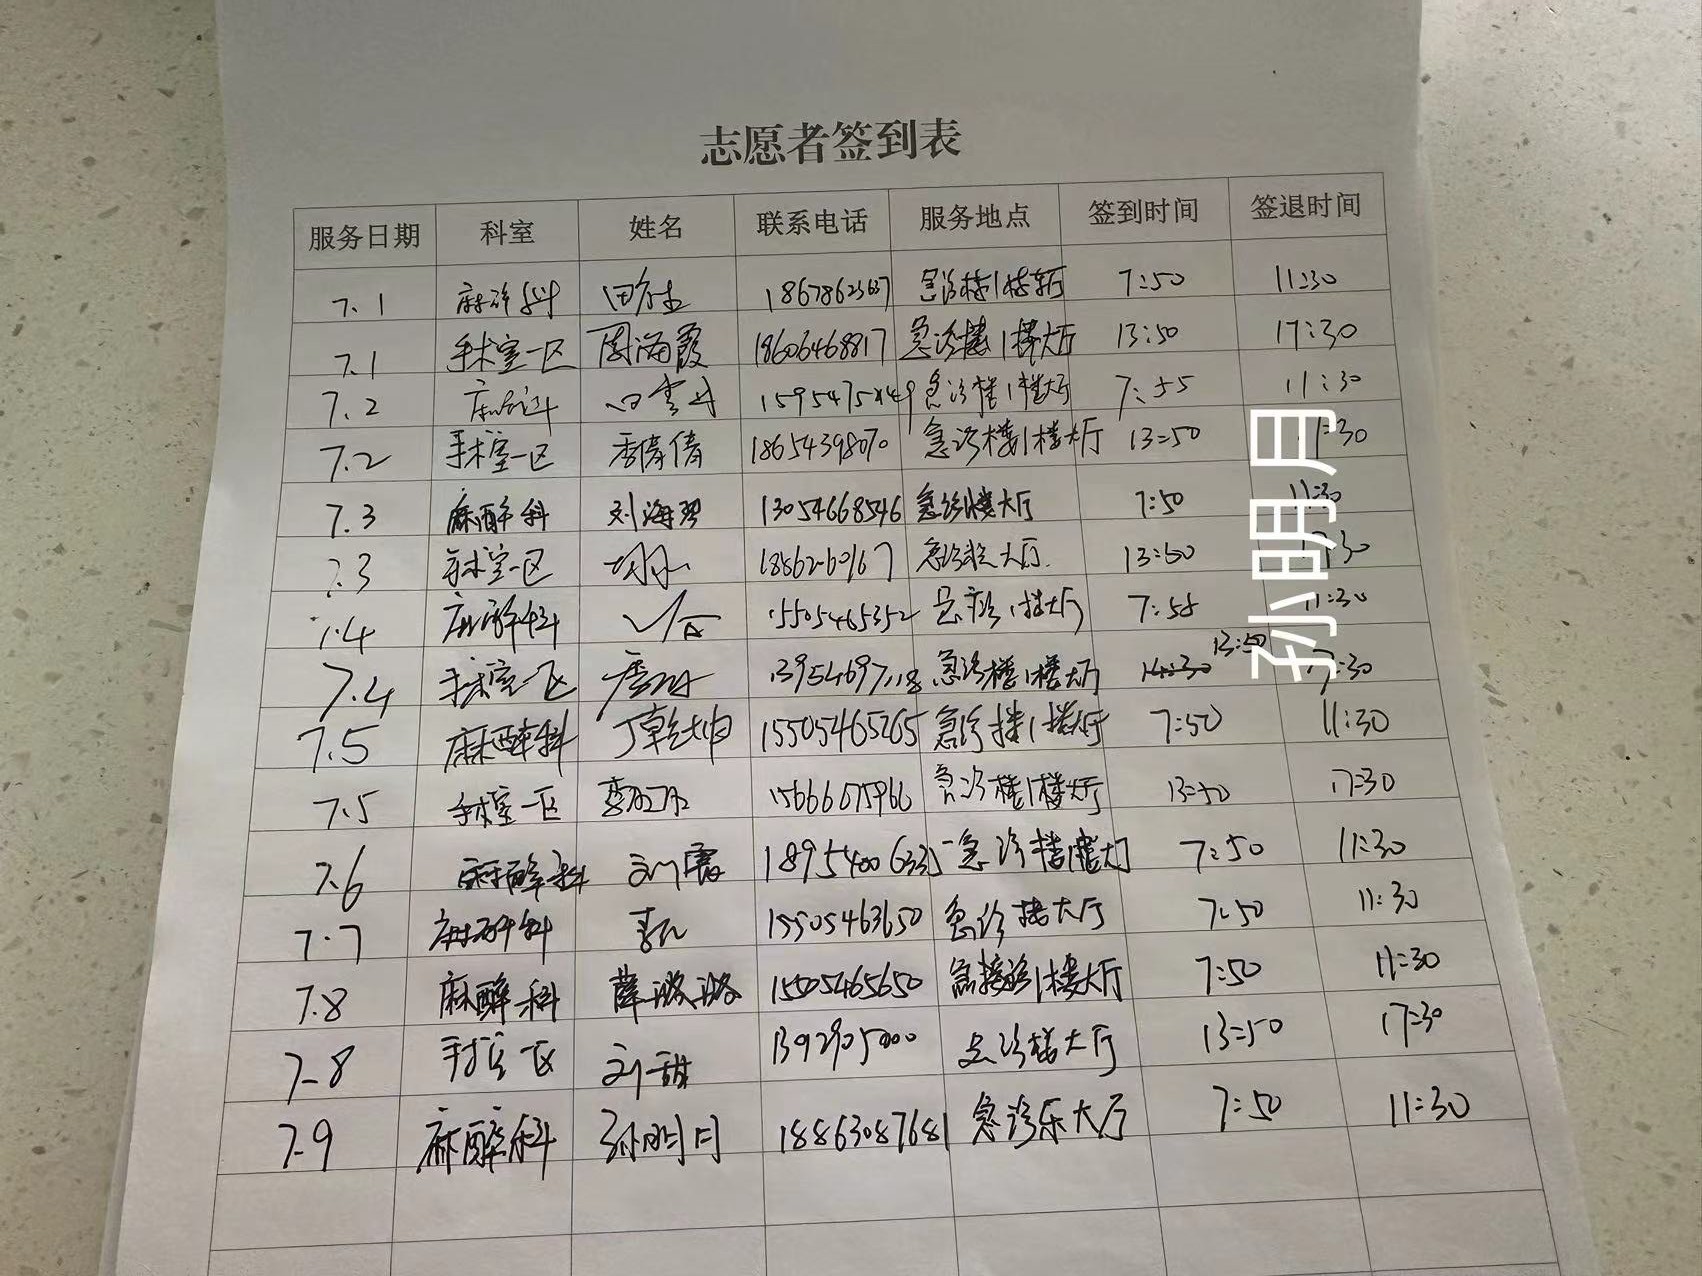 志愿者签到表
服务日期 科室 姓名 联系电话 服务地点 签到时间 签退时间
7.1 麻醉科 急诊楼1楼大厅 7:50 11:30
7.1 手术室一区 周海霞 18606468817 急诊楼1楼大厅 13:50 17:30
7.2 麻醉科 急诊楼1楼大厅 7:55 11:30
7.2 手术室一区 李倩倩 18654398070 急诊楼1楼大厅 13:50
7.3 麻醉科 刘海 13054668546 急诊楼大厅 7:50 11:30
7.3 手术室一区 急诊楼大厅 13:50
7.4 麻醉科 15505465352 急诊1楼大厅 7:55 11:30
7.4 手术室一区 急诊楼1楼大厅 14:30 13:50 17:30
7.5 麻醉科 丁乾坤 15505465265 急诊楼1楼大厅 7:50 11:30
7.5 手术室一区 15666675966 急诊楼1楼大厅 13:50 17:30
7.6 麻醉科 刘霞 急诊楼1楼大厅 7:50 11:30
7.7 麻醉科 15505463650 急诊楼大厅 7:50 11:30
7.8 麻醉科 薛潞潞 15505465650 1楼大厅 7:50 11:30
7.8 手术室一区 刘甜 急诊楼大厅 13:50 17:30
7.9 麻醉科 孙明月 18863087681 急诊乐大厅 7:50 11:30
孙明月